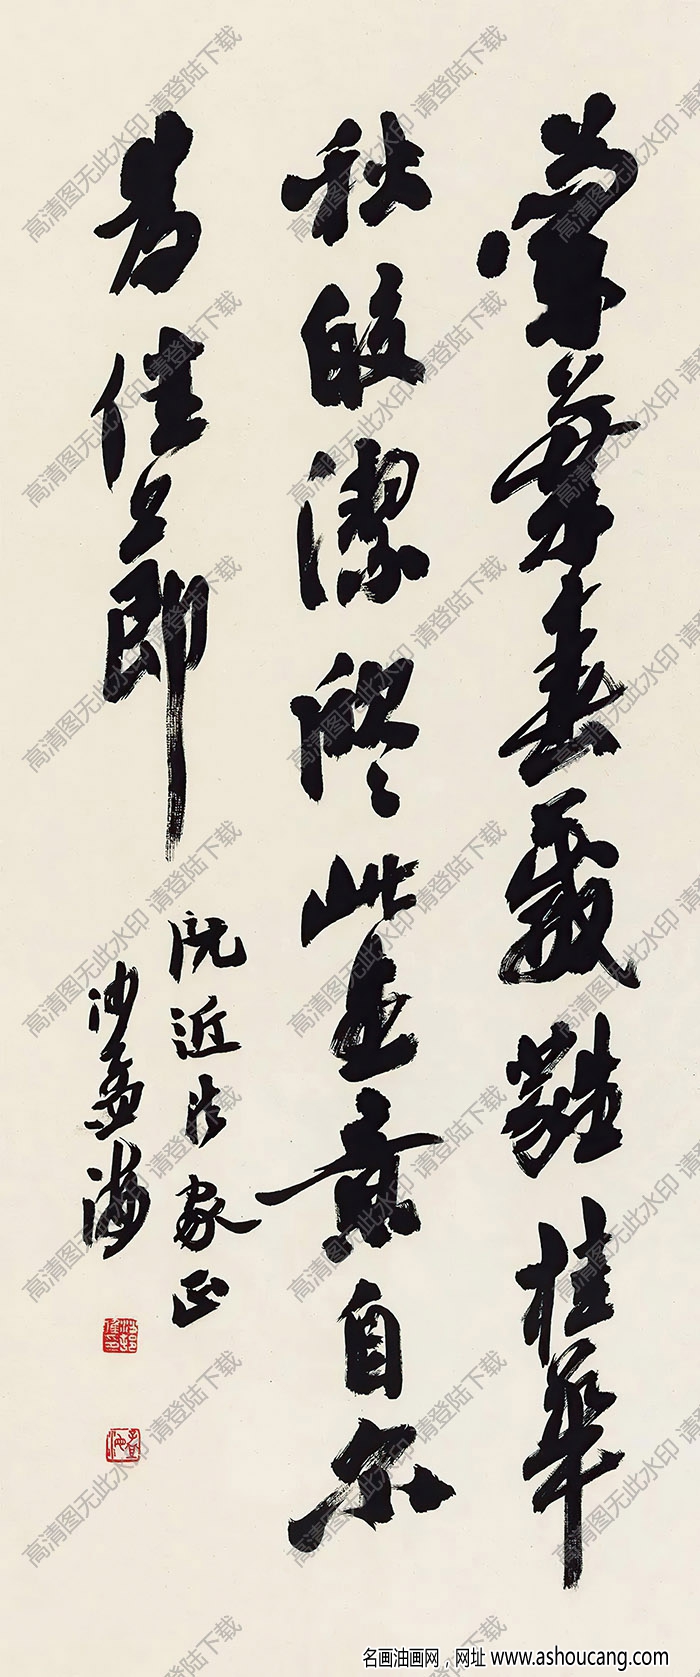 蘭葉春葳蕤桂華
秋皎潔欣々此生意自尔
為佳節
阮近法家正
沙孟海
高清图无此水印 请登陆下载
名画油画网，网址 www.ashoucang.com